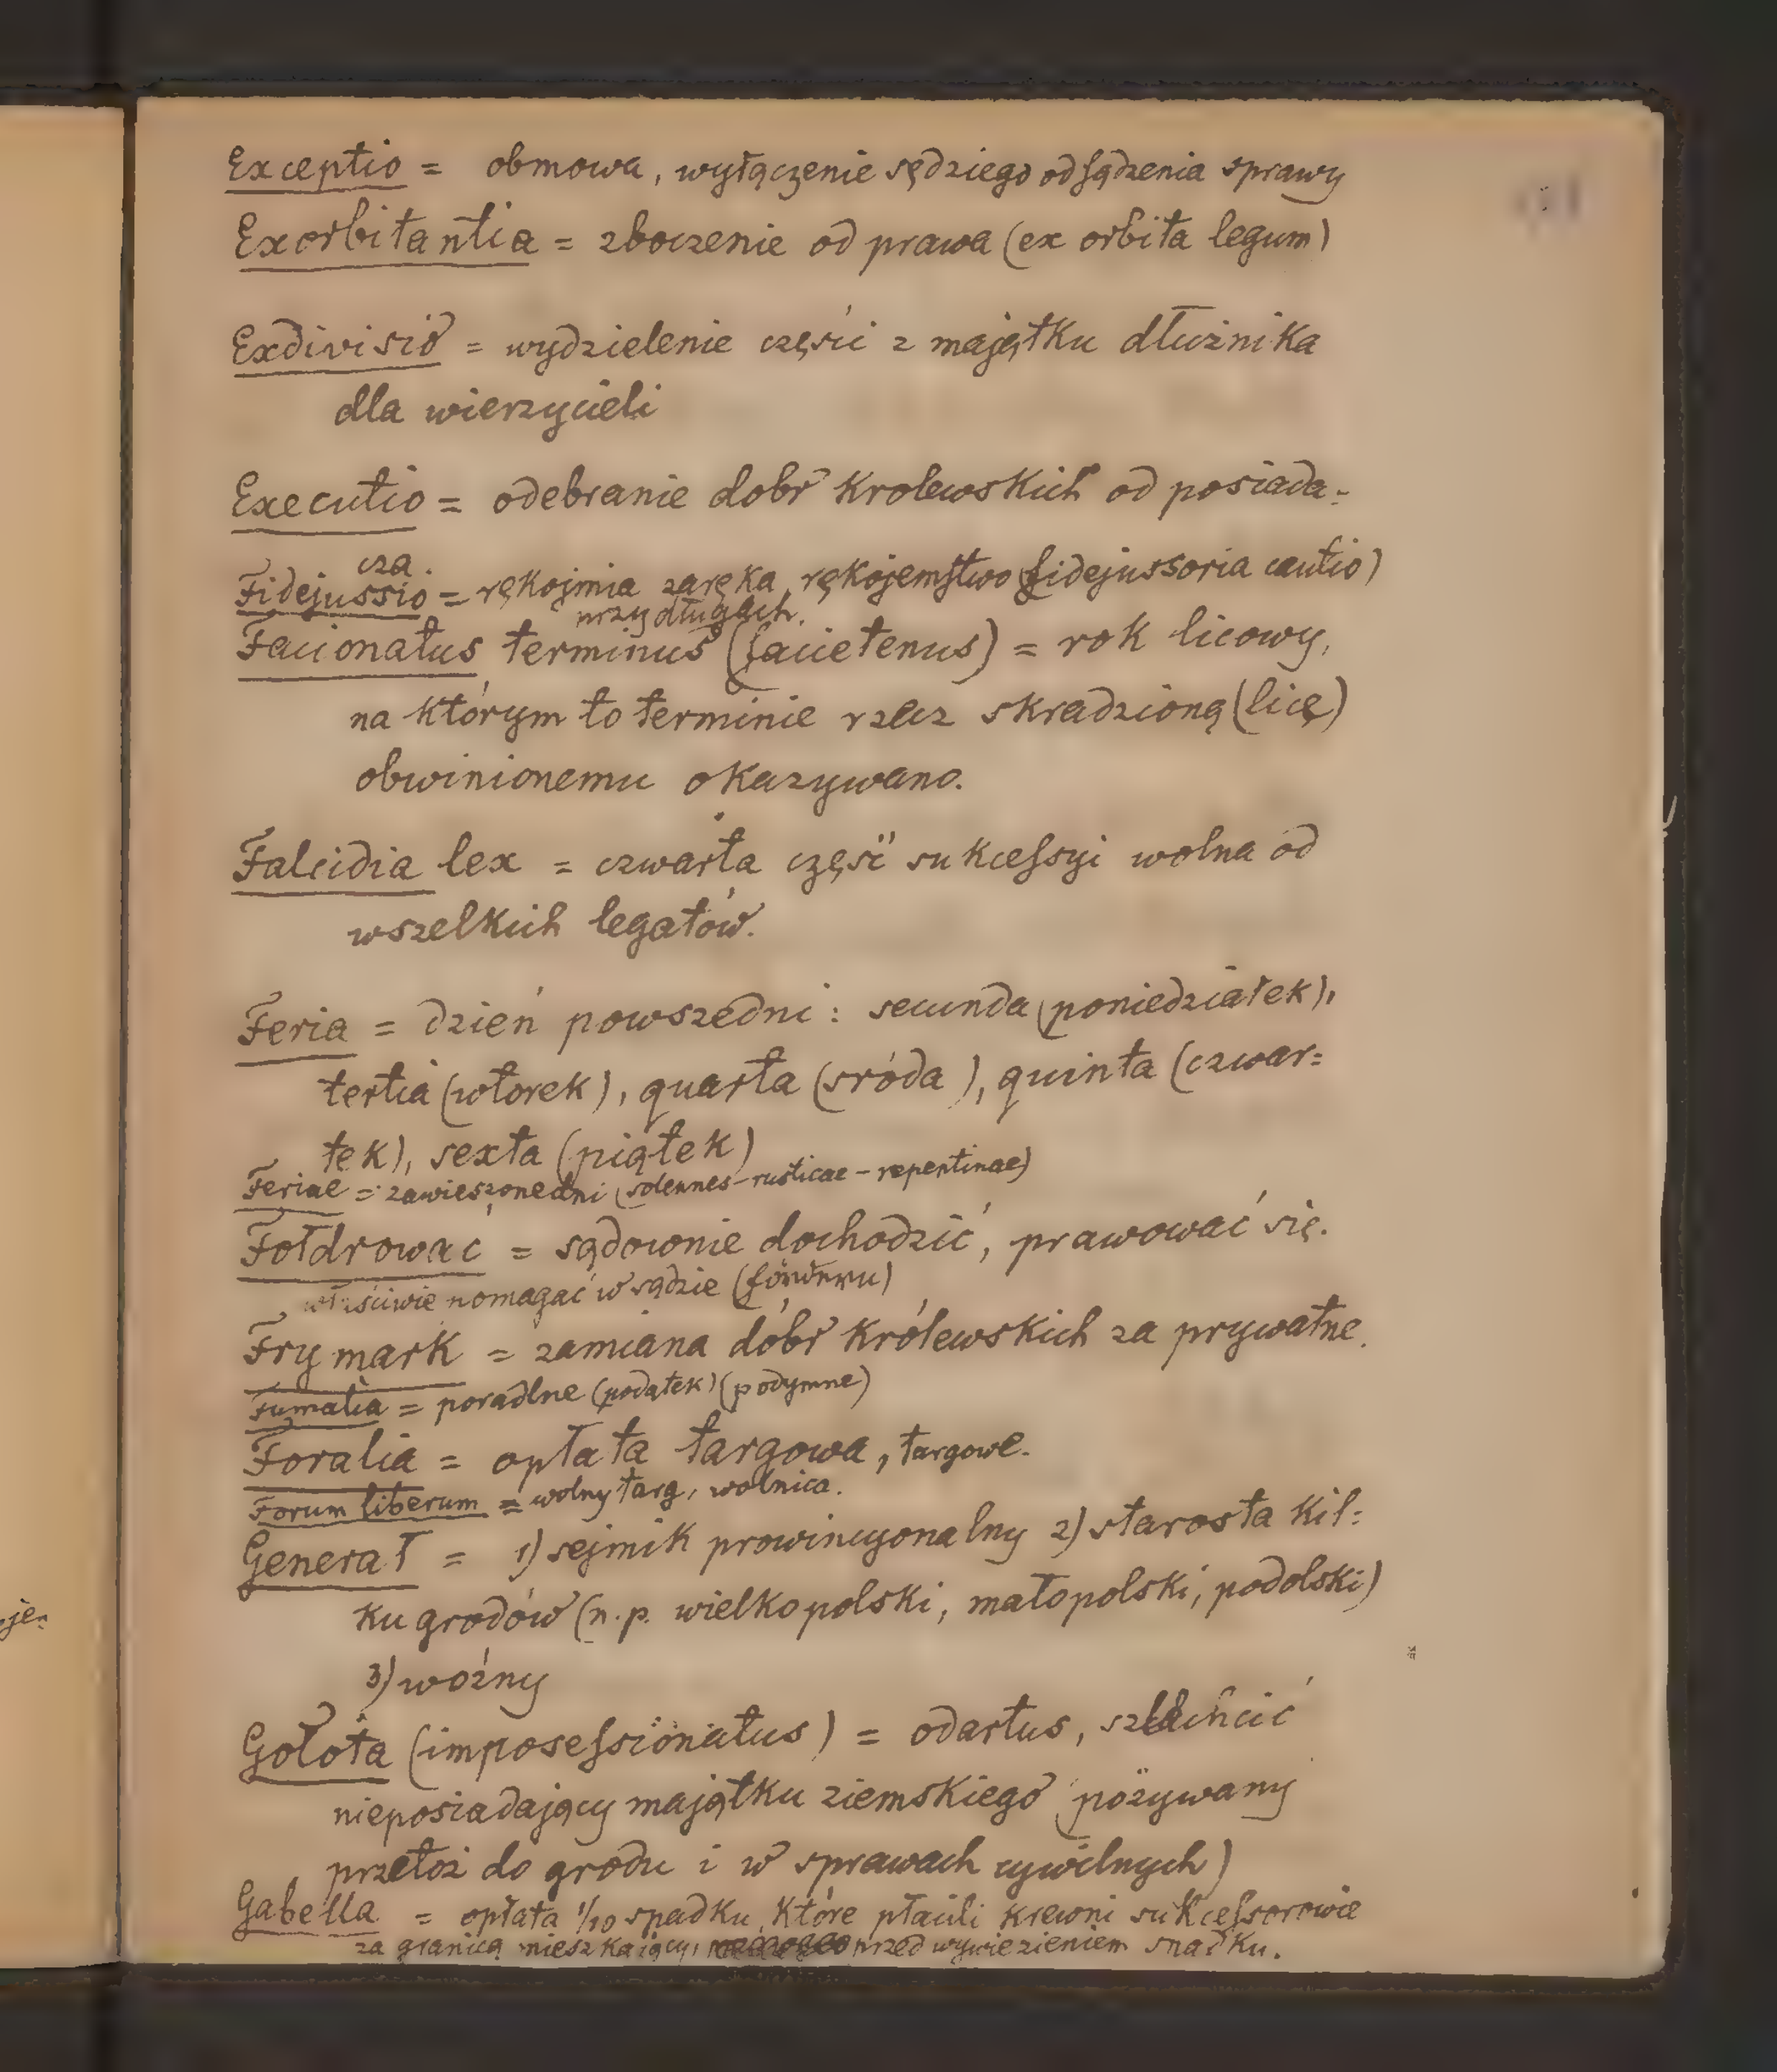 Exceptio = obmowa, wyłączenie sędziego od sądzenia sprawy
Exorbitantia = zboczenie od prawa (ex orbita legum)
Exdivisio = wydzielenie części z majątku dłużnika
dla wierzycieli
Executio = odebranie dobr krolewskich od posiada-
cza.
Fidejussio = rękojmia zaręka, rękojemstwo (fidejussoria cautio)
przy długach.
Facionatus terminus (facietenus) = rok licowy,
na którym to terminie rzecz skradzioną (licę)
obwinionemu okazywano.
Falcidia lex = czwarta część sukcessyi wolna od
wszelkich legatów.
Feria = dzień powszedni: secunda (poniedziałek),
tertia (wtorek), quarta (sróda), quinta (czwar=
tek), sexta (piątek)
Feriae = zawieszone dni (solennes - rusticae - repentinae)
Fołdrować = sądownie dochodzić, prawować się.
właściwie pomagać w sądzie
Frymark = zamiana dóbr królewskich za prywatne.
Fumalia = poradlne (podatek) (podymne)
Foralia = opłata targowa, targowe.
Forum liberum = wolny targ, wolnica.
Generał = 1) sejmik prowincyonalny 2) starosta kil=
ku grodów (n.p. wielkopolski, małopolski, podolski)
3) woźny
Gołota (imposessionatus) = odartus, szlachcić
nieposiadający majątku ziemskiego (pozywany
przetoż do grodu i w sprawach cywilnych)
Gabella = opłata 1/10 spadku, które płacili krewni sukcessorowie
za granicą mieszkający, przed wywiezieniem spadku.